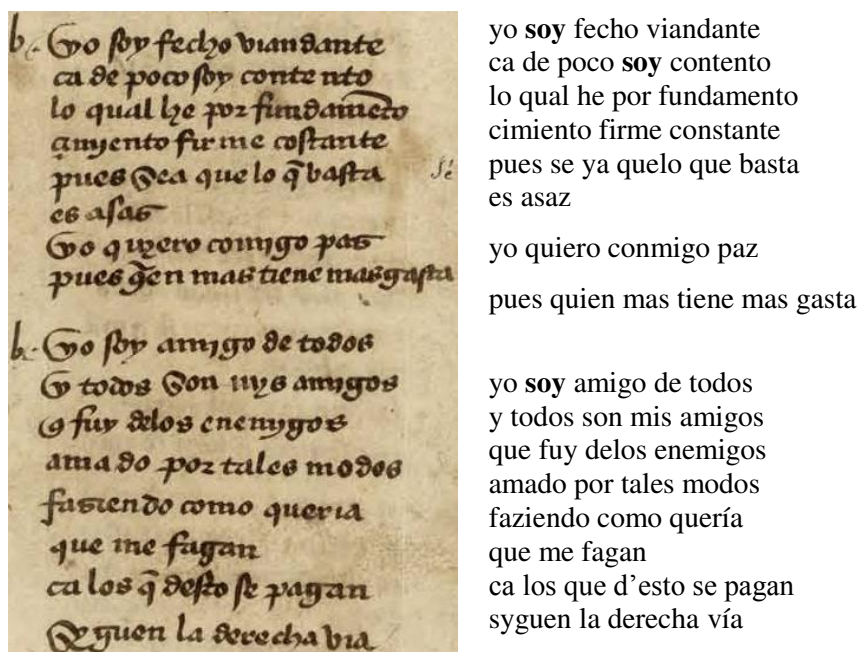 yo soy fecho viandante
ca de poco soy contento
lo qual he por fundamẽto
çimyento firme costante
pues sea que lo q̃ basta
es asas
yo quyero comigo pas
pues q̃en mas tiene mas gasta
yo soy amygo de todos
y todos son mys amygos
q̃ fuy delos enemygos
amado por tales modos
fasiendo como queria
que me fagan
ca los q̃ desto se pagan
syguen la derecha via
yo soy fecho viandante
ca de poco soy contento
lo qual he por fundamento
cimiento firme constante
pues se ya quelo que basta
es asaz
yo quiero conmigo paz
pues quien mas tiene mas gasta
yo soy amigo de todos
y todos son mis amigos
que fuy delos enemigos
amado por tales modos
faziendo como quería
que me fagan
ca los que d’esto se pagan
syguen la derecha vía